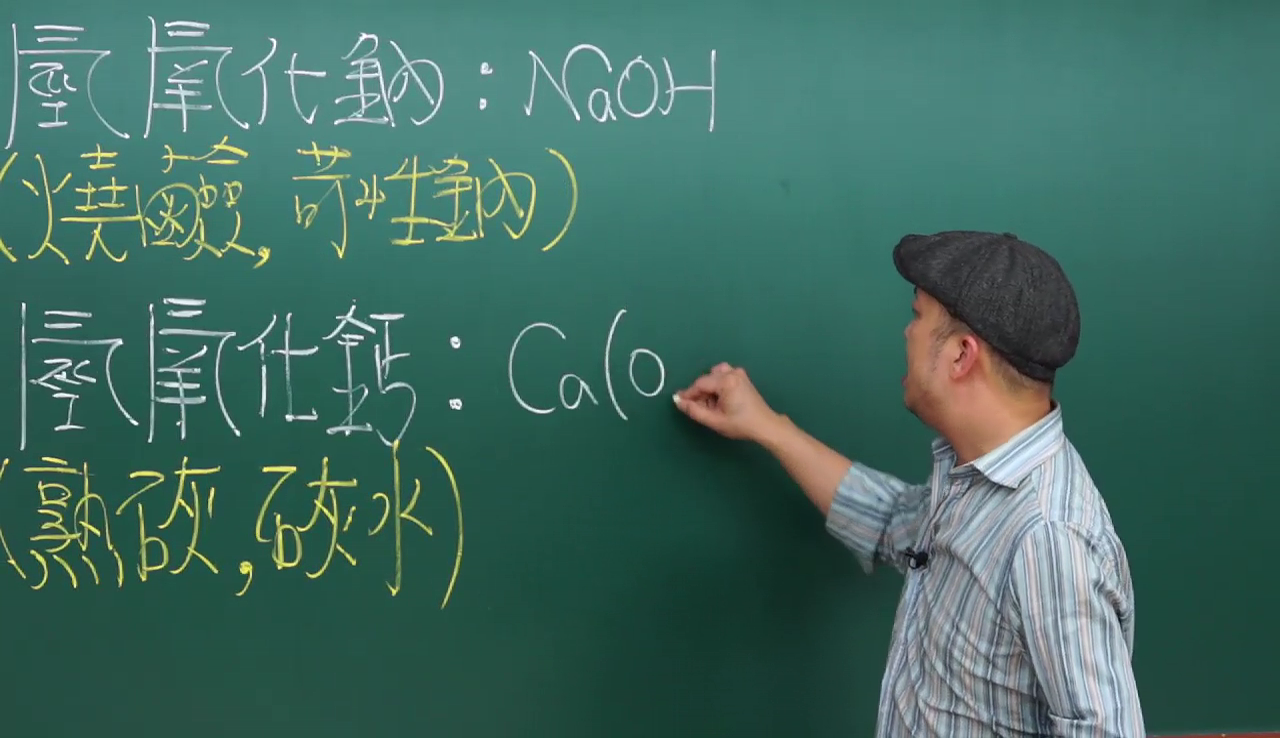 氫氧化鈉：NaOH
(燒鹼,苛性鈉)
氫氧化鈣：Ca(O
(熟碳,碳水)